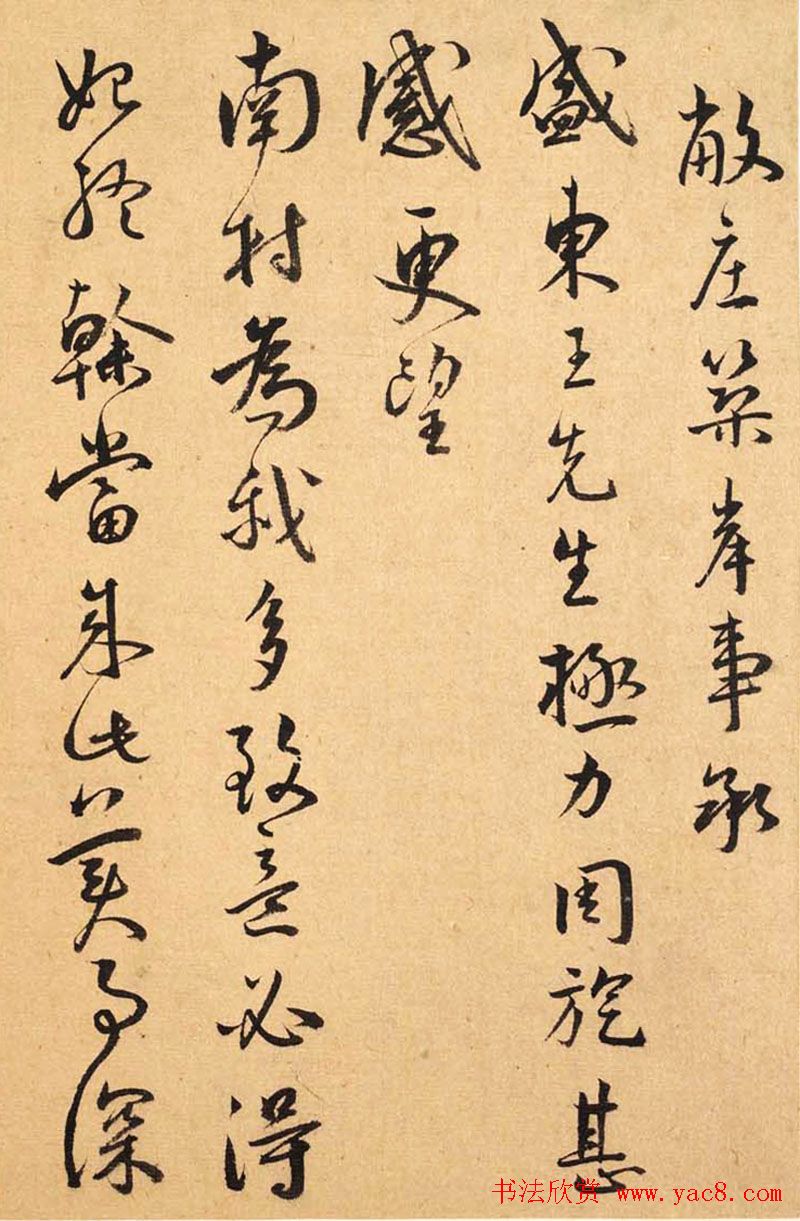 敝庄築岸事承
盛東王先生極力周旋甚
感更望
南村為我多致意必得
始終幹當成此美事深
书法欣赏 www.yac8.com